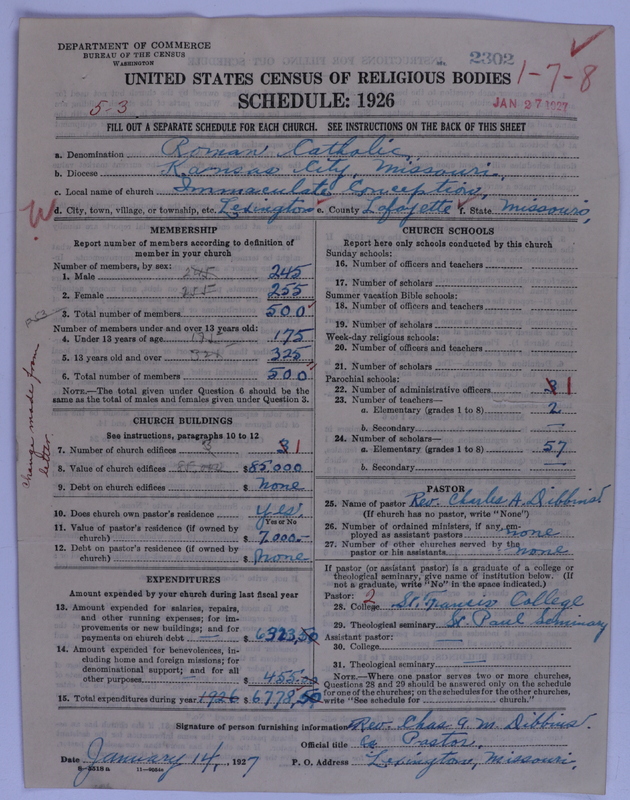 DEPARTMENT OF COMMERCE
BUREAU OF THE CENSUS
WASHINGTON
2302
1-7-8
UNITED STATES CENSUS OF RELIGIOUS BODIES
5-3
SCHEDULE: 1926
JAN 27 1927
FILL OUT A SEPARATE SCHEDULE FOR EACH CHURCH. SEE INSTRUCTIONS ON THE BACK OF THIS SHEET
a. Denomination Roman Catholic,
b. Diocese Kansas City, Missouri,
c. Local name of church Immaculate Conception,
d. City, town, village, or township, etc. Lexington e. County Lafayette f. State Missouri,
MEMBERSHIP
Report number of members according to definition of
member in your church
Number of members, by sex:
1. Male 245 245
2. Female 255 255
3. Total number of members 500
Number of members under and over 13 years old:
4. Under 13 years of age 175
5. 13 years old and over 325 325
6. Total number of members 500
NOTE.—The total given under Question 6 should be the
same as the total of males and females given under Question 3.
change made from
letter
CHURCH BUILDINGS
See instructions, paragraphs 10 to 12
7. Number of church edifices 3 1
8. Value of church edifices 85,000 $85.000
9. Debt on church edifices $ None
10. Does church own pastor's residence Yes,
Yes or No
11. Value of pastor's residence (if owned by
church) $7,000.—
12. Debt on pastor's residence (if owned by
church) $ None
EXPENDITURES
Amount expended by your church during last fiscal year
13. Amount expended for salaries, repairs,
and other running expenses; for im-
provements or new buildings; and for
payments on church debt — $6323,50
14. Amount expended for benevolences, in-
cluding home and foreign missions; for
denominational support; and for all
other purposes — $455.00
15. Total expenditures during year 1926 $6778,50
CHURCH SCHOOLS
Report here only schools conducted by this church
Sunday schools:
16. Number of officers and teachers
17. Number of scholars
Summer vacation Bible schools:
18. Number of officers and teachers
19. Number of scholars
Week-day religious schools:
20. Number of officers and teachers
21. Number of scholars
Parochial schools:
22. Number of administrative officers 3 1
23. Number of teachers—
a. Elementary (grades 1 to 8) 2
b. Secondary —
24. Number of scholars—
a. Elementary (grades 1 to 8) 57
b. Secondary —
PASTOR
25. Name of pastor Rev. Charles A. Dibbins
(If church has no pastor, write "None")
26. Number of ordained ministers, if any, em-
ployed as assistant pastors none
27. Number of other churches served by the
pastor or his assistants none
If pastor (or assistant pastor) is a graduate of a college or
theological seminary, give name of institution below. (If
not a graduate, write "No" in the space indicated.)
Pastor: 2
28. College St. Francis College
29. Theological seminary St. Paul Seminary
Assistant pastor: —
30. College
31. Theological seminary —
NOTE.—Where one pastor serves two or more churches,
Questions 28 and 29 should be answered only on the schedule
for one of the churches; on the schedules for the other churches,
write "See schedule for church."
Signature of person furnishing information Rev. Chas A. M. Dibbins.
Official title Pastor,
Date January 14, 1927 P. O. Address Lexington, Missouri,
8-3518 a